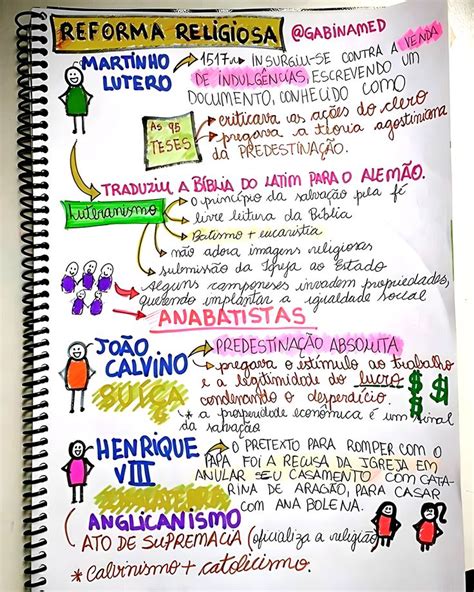 REFORMA RELIGIOSA @GABINAMED
MARTINHO LUTERO
1517 INSURGIU-SE CONTRA A VENDA
DE INDULGÊNCIAS, ESCREVENDO UM
DOCUMENTO, CONHECIDO COMO
AS 95 TESES
criticava as ações do clero
pregava a teoria agostiniana
da PREDESTINAÇÃO.
TRADUZIU A BÍBLIA DO LATIM PARA O ALEMÃO.
Luteranismo
o princípio da salvação pela fé
livre leitura da Bíblia
Batismo + eucaristia
não adora imagens religiosas
submissão da Igreja ao Estado
Alguns camponeses invadem propriedades,
querendo implantar a igualdade social
ANABATISTAS
JOÃO CALVINO
SUÍÇA
PREDESTINAÇÃO ABSOLUTA
pregava o estímulo ao trabalho
e a legitimidade do lucro
condenando o desperdício.
* a prosperidade econômica é um sinal
da salvação
HENRIQUE VIII
INGLATERRA
O PRETEXTO PARA ROMPER COM O
PAPA FOI A RECUSA DA IGREJA EM
ANULAR SEU CASAMENTO COM CATA-
RINA DE ARAGÃO, PARA CASAR
COM ANA BOLENA.
ANGLICANISMO
ATO DE SUPREMACIA (oficializa a religião)
* calvinismo + catolicismo.